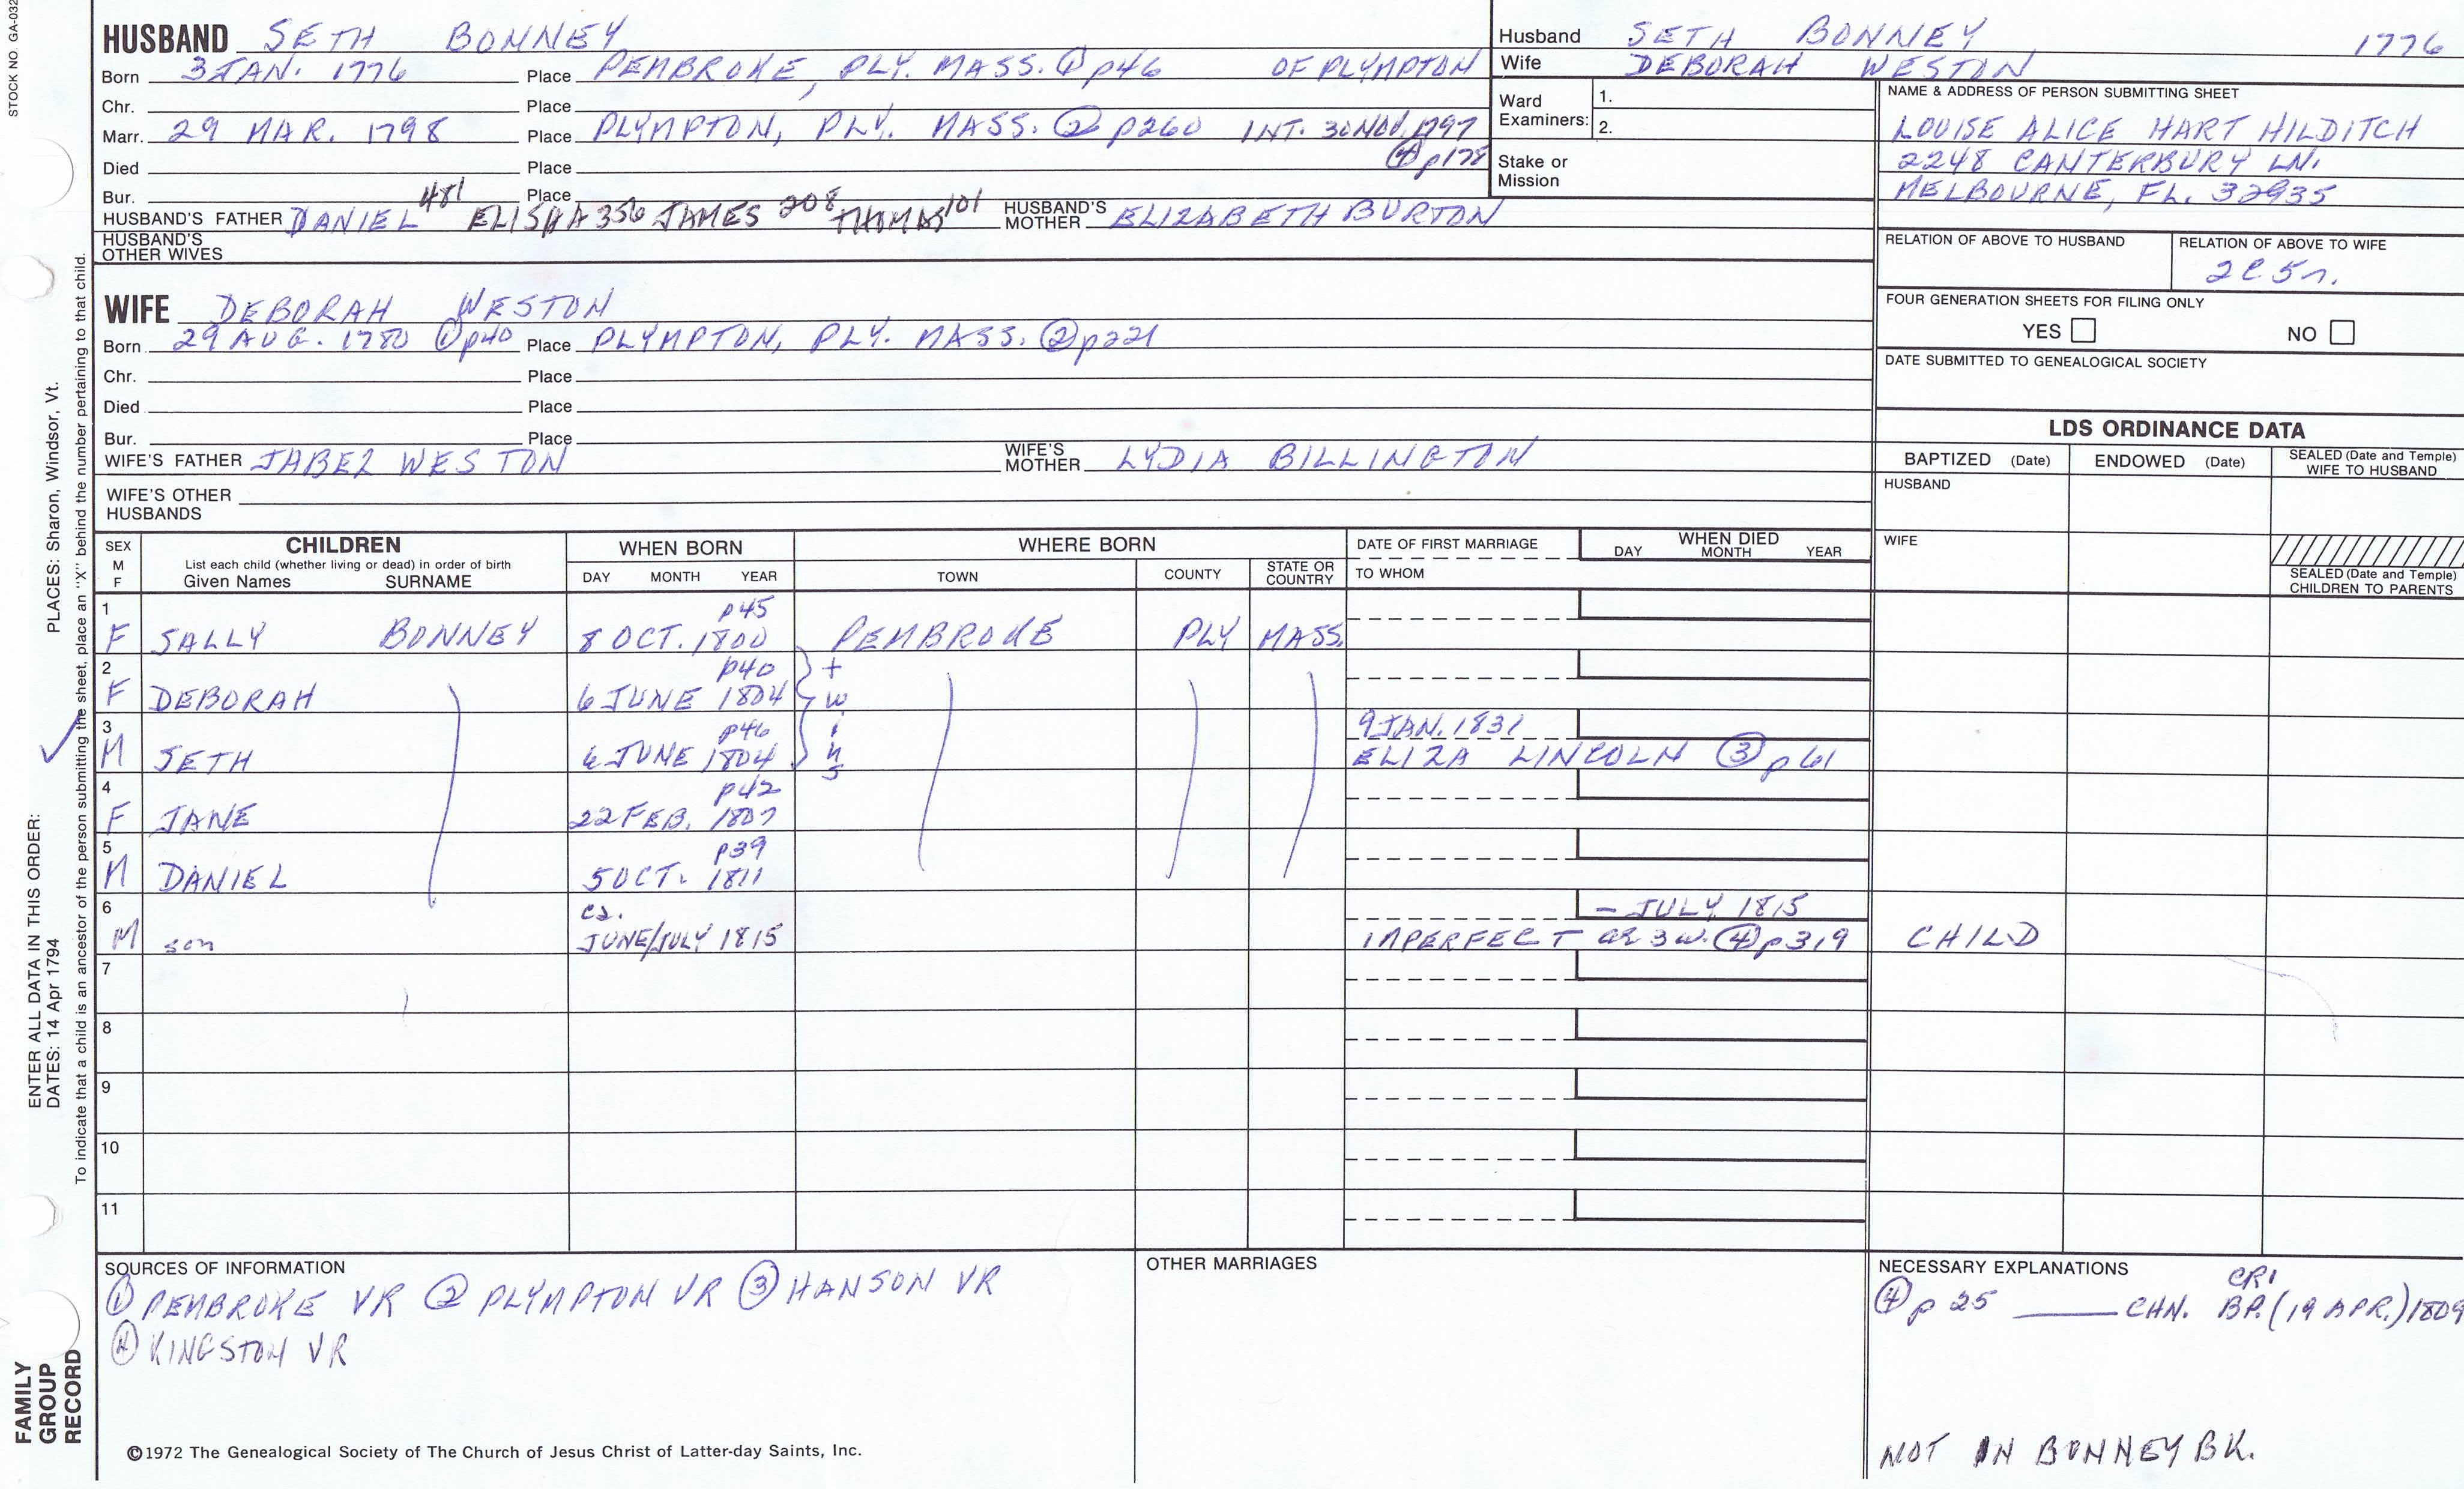 STOCK NO. GA-032
HUSBAND SETH BONNEY
Born 3 JAN. 1776 Place PEMBROKE, PLY. MASS. ① p46 OF PLYMPTON
Chr. Place
Marr. 29 MAR. 1798 Place PLYMPTON, PLY. MASS. ② p260 INT. 30 NOV. 1797
④ p178
Died Place
Bur. Place
HUSBAND'S FATHER DANIEL 481 ELISHA 356 JAMES 208 THOMAS 101 HUSBAND'S MOTHER ELIZABETH BURTON
HUSBAND'S OTHER WIVES
Husband SETH BONNEY 1776
Wife DEBORAH WESTON
Ward Examiners: 1.
2.
Stake or Mission
NAME & ADDRESS OF PERSON SUBMITTING SHEET
LOUISE ALICE HART HILDITCH
2248 CANTERBURY LN.
MELBOURNE, FL. 32935
RELATION OF ABOVE TO HUSBAND
RELATION OF ABOVE TO WIFE
2C5r.
FOUR GENERATION SHEETS FOR FILING ONLY
YES NO
DATE SUBMITTED TO GENEALOGICAL SOCIETY
WIFE DEBORAH WESTON
Born 29 AUG. 1780 ① p40 Place PLYMPTON, PLY. MASS. ② p221
Chr. Place
Died Place
Bur. Place
WIFE'S FATHER JABEZ WESTON WIFE'S MOTHER LYDIA BILLINGTON
WIFE'S OTHER HUSBANDS
LDS ORDINANCE DATA
BAPTIZED (Date) ENDOWED (Date) SEALED (Date and Temple) WIFE TO HUSBAND
HUSBAND
WIFE
SEALED (Date and Temple) CHILDREN TO PARENTS
SEX M F
CHILDREN
List each child (whether living or dead) in order of birth
Given Names SURNAME
WHEN BORN
DAY MONTH YEAR
WHERE BORN
TOWN COUNTY STATE OR COUNTRY
DATE OF FIRST MARRIAGE
TO WHOM
WHEN DIED
DAY MONTH YEAR
1 p45
F SALLY BONNEY 8 OCT. 1800 PEMBROKE PLY MASS.
2 p40
F DEBORAH 6 JUNE 1804 twins
3 p46 9 JAN. 1831
M SETH 6 JUNE 1804 ELIZA LINCOLN ③ p61
4 p42
F JANE 22 FEB. 1807
5 p39
M DANIEL 5 OCT. 1811
6 ca. – JULY 1815
M son JUNE/JULY 1815 IMPERFECT ae 3 w. ④ p319 CHILD
7
8
9
10
11
SOURCES OF INFORMATION
① PEMBROKE VR ② PLYMPTON VR ③ HANSON VR
④ KINGSTON VR
OTHER MARRIAGES
NECESSARY EXPLANATIONS
CR1
④ p 25 ____ CHN. BP. (19 APR.) 1809
NOT IN BONNEY BK.
©1972 The Genealogical Society of The Church of Jesus Christ of Latter-day Saints, Inc.
FAMILY GROUP RECORD
ENTER ALL DATA IN THIS ORDER:
DATES: 14 Apr 1794 PLACES: Sharon, Windsor, Vt.
To indicate that a child is an ancestor of the person submitting the sheet, place an "X" behind the number pertaining to that child.